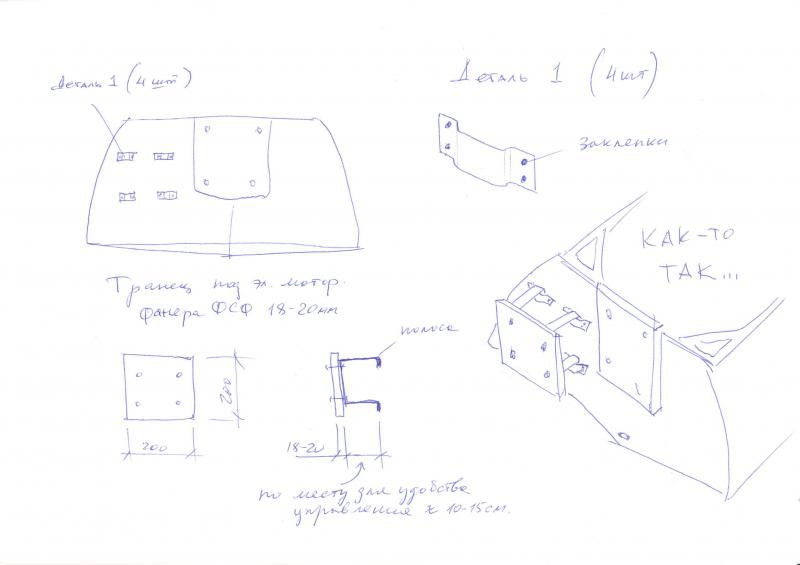 Деталь 1 (4 шт)
Деталь 1 (4 шт)
заклепки
КАК-ТО
ТАК...
Транец под эл. мотор.
фанера ФСФ 18-20мм
полоса
200
200
18-20
по месту для удобства
управления ± 10-15см.